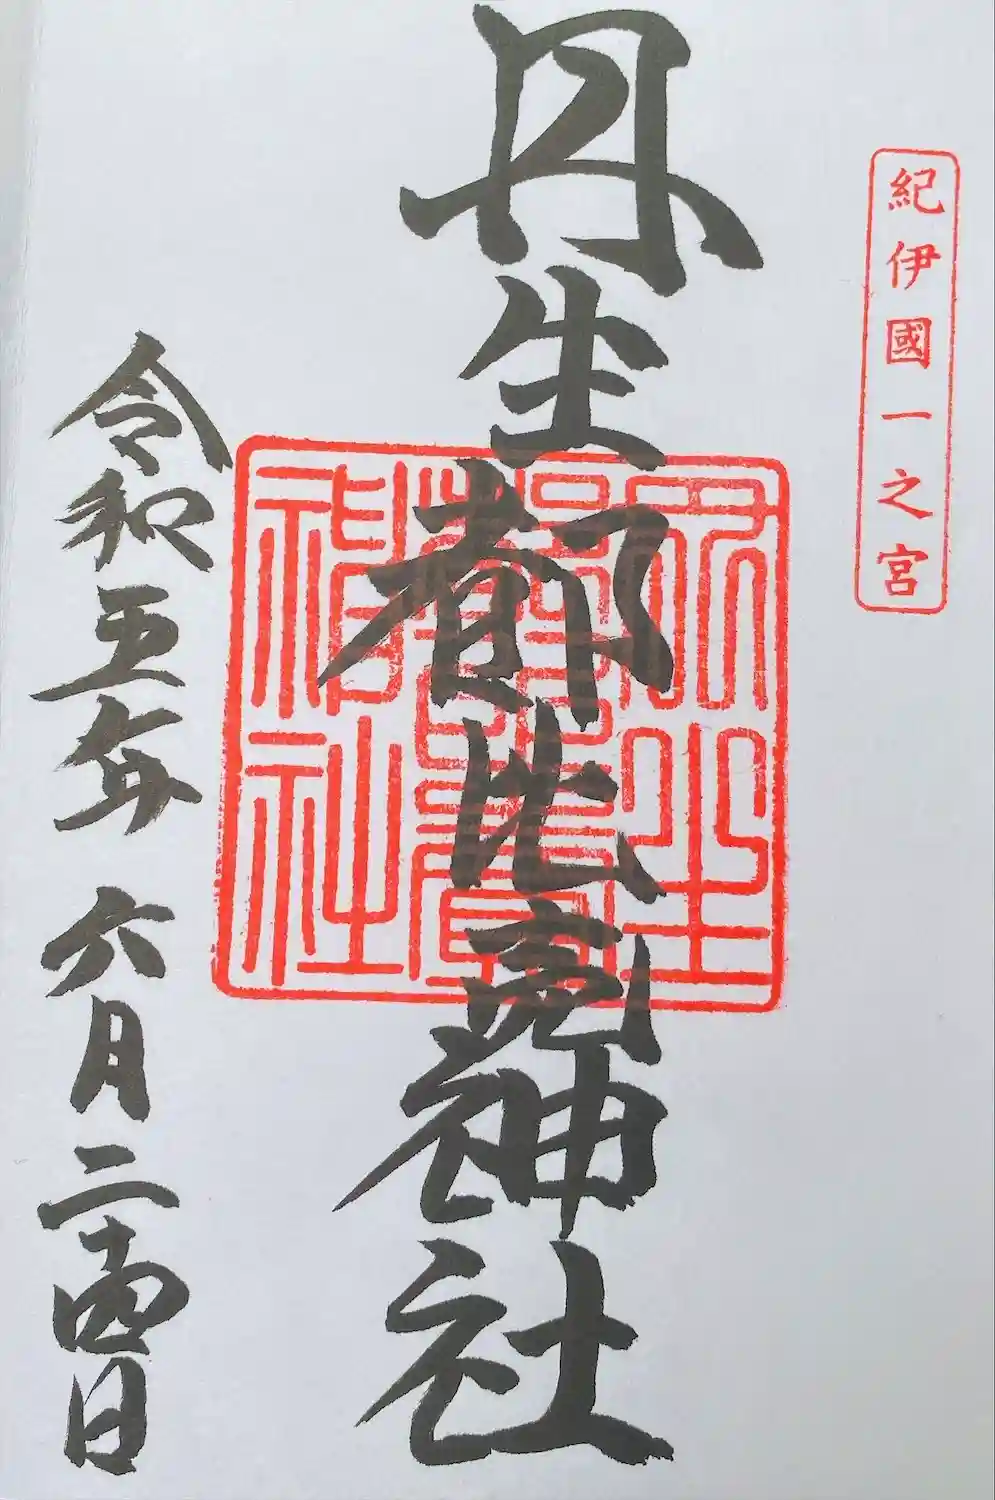 紀伊國一之宮
丹生都比売神社
丹生
都比賣
神社
令和五年 六月二十四日